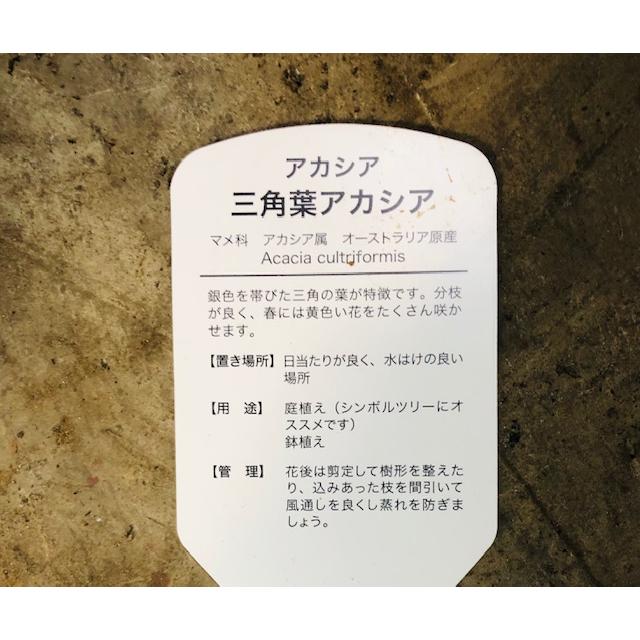 アカシア
三角葉アカシア
マメ科　アカシア属　オーストラリア原産
Acacia cultriformis
銀色を帯びた三角の葉が特徴です。分枝
が良く、春には黄色い花をたくさん咲か
せます。
【置き場所】日当たりが良く、水はけの良い
場所
【用　途】　庭植え（シンボルツリーにオ
ススメです）
鉢植え
【管　理】　花後は剪定して樹形を整えた
り、込みあった枝を間引いて
風通しを良くし蒸れを防ぎま
しょう。